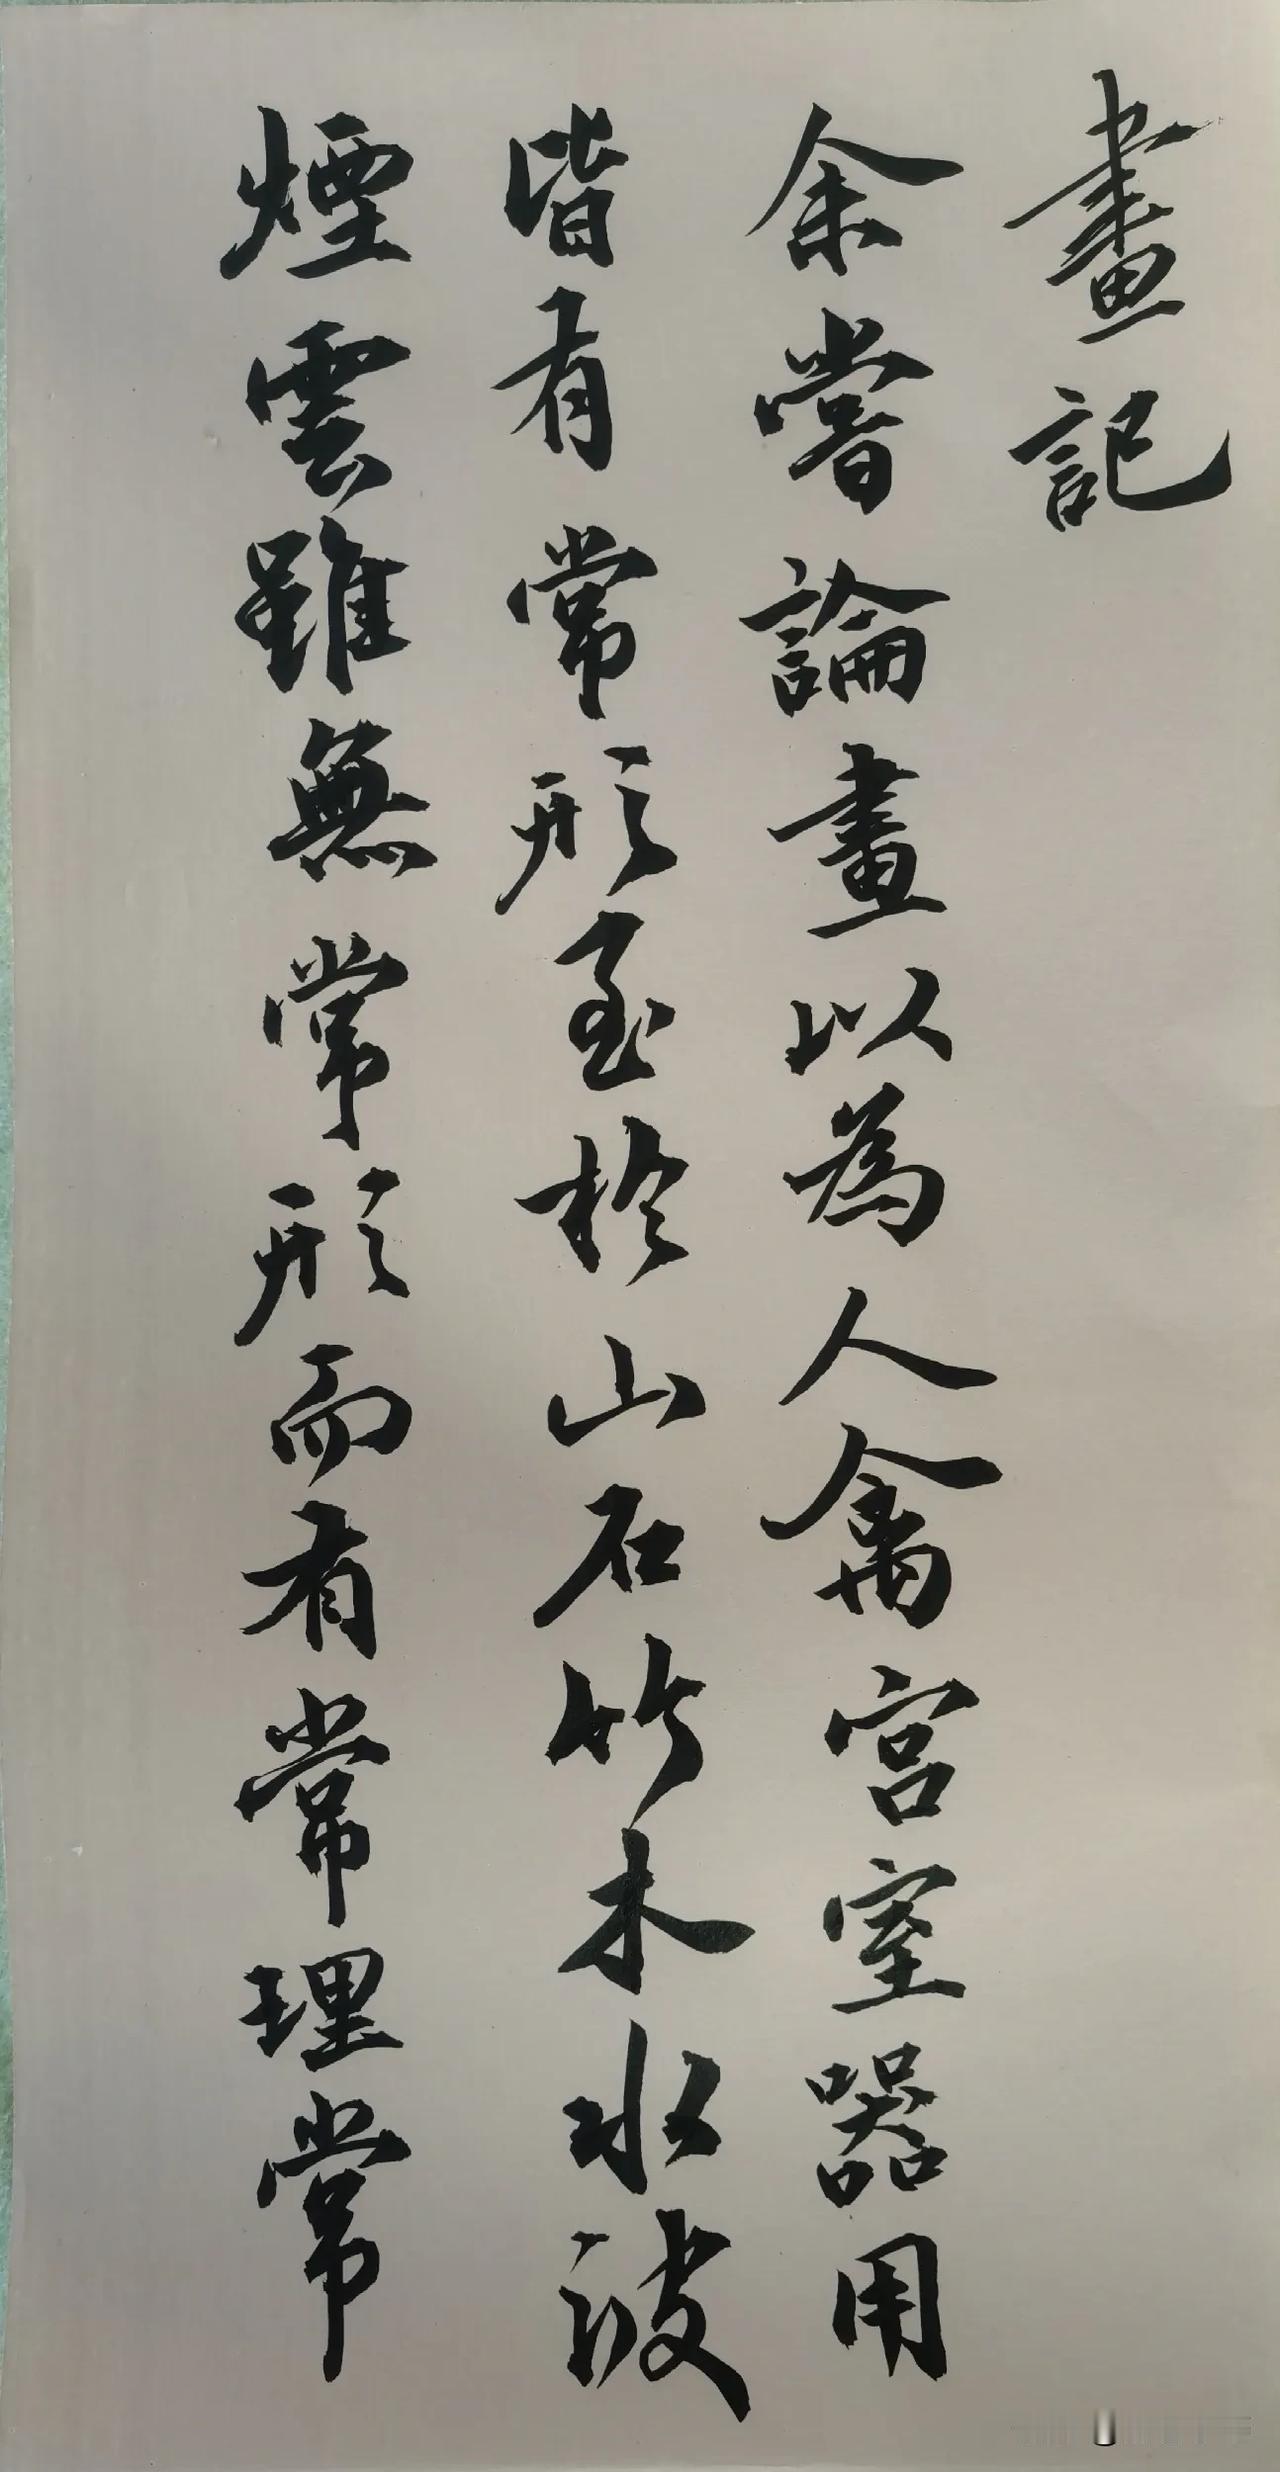 畫記
余嘗論畫以為人禽宮室器用
皆有常形至於山石竹木水波
煙雲雖無常形而有常理常